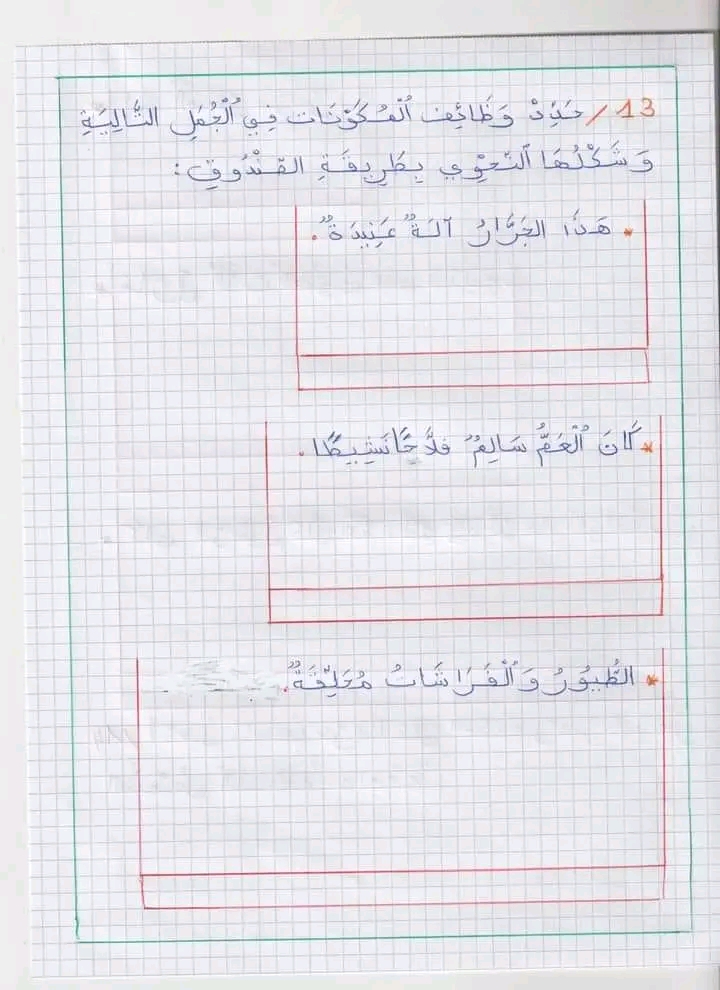 13/ حَدِّدْ وَظَائِف ٱلْمُكَوِّنَات فِي ٱلْجُمَلِ التَّالِيَةِ
وَشَكْلُهَا النَّحْوِي بِطَرِيقَةِ الصُّنْدُوقِ:
* هَذَا الجَرَّارُ آلَةٌ عَنِيدَةٌ.
* كَانَ ٱلْعَمُّ سَالِمُ فلاَّحًا نَشِيطًا.
* الطُّيُورُ وَٱلْفَرَاشَاتُ مُحَلِّقَةٌ.